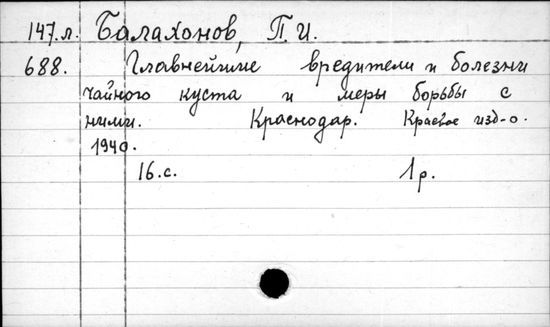 147.л. Балахонов, П. И.
688. Главнейшие вредители и болезни
чайного куста и меры борьбы с
ними. Краснодар. Краевое изд-о.
1940.
16.с. 1р.